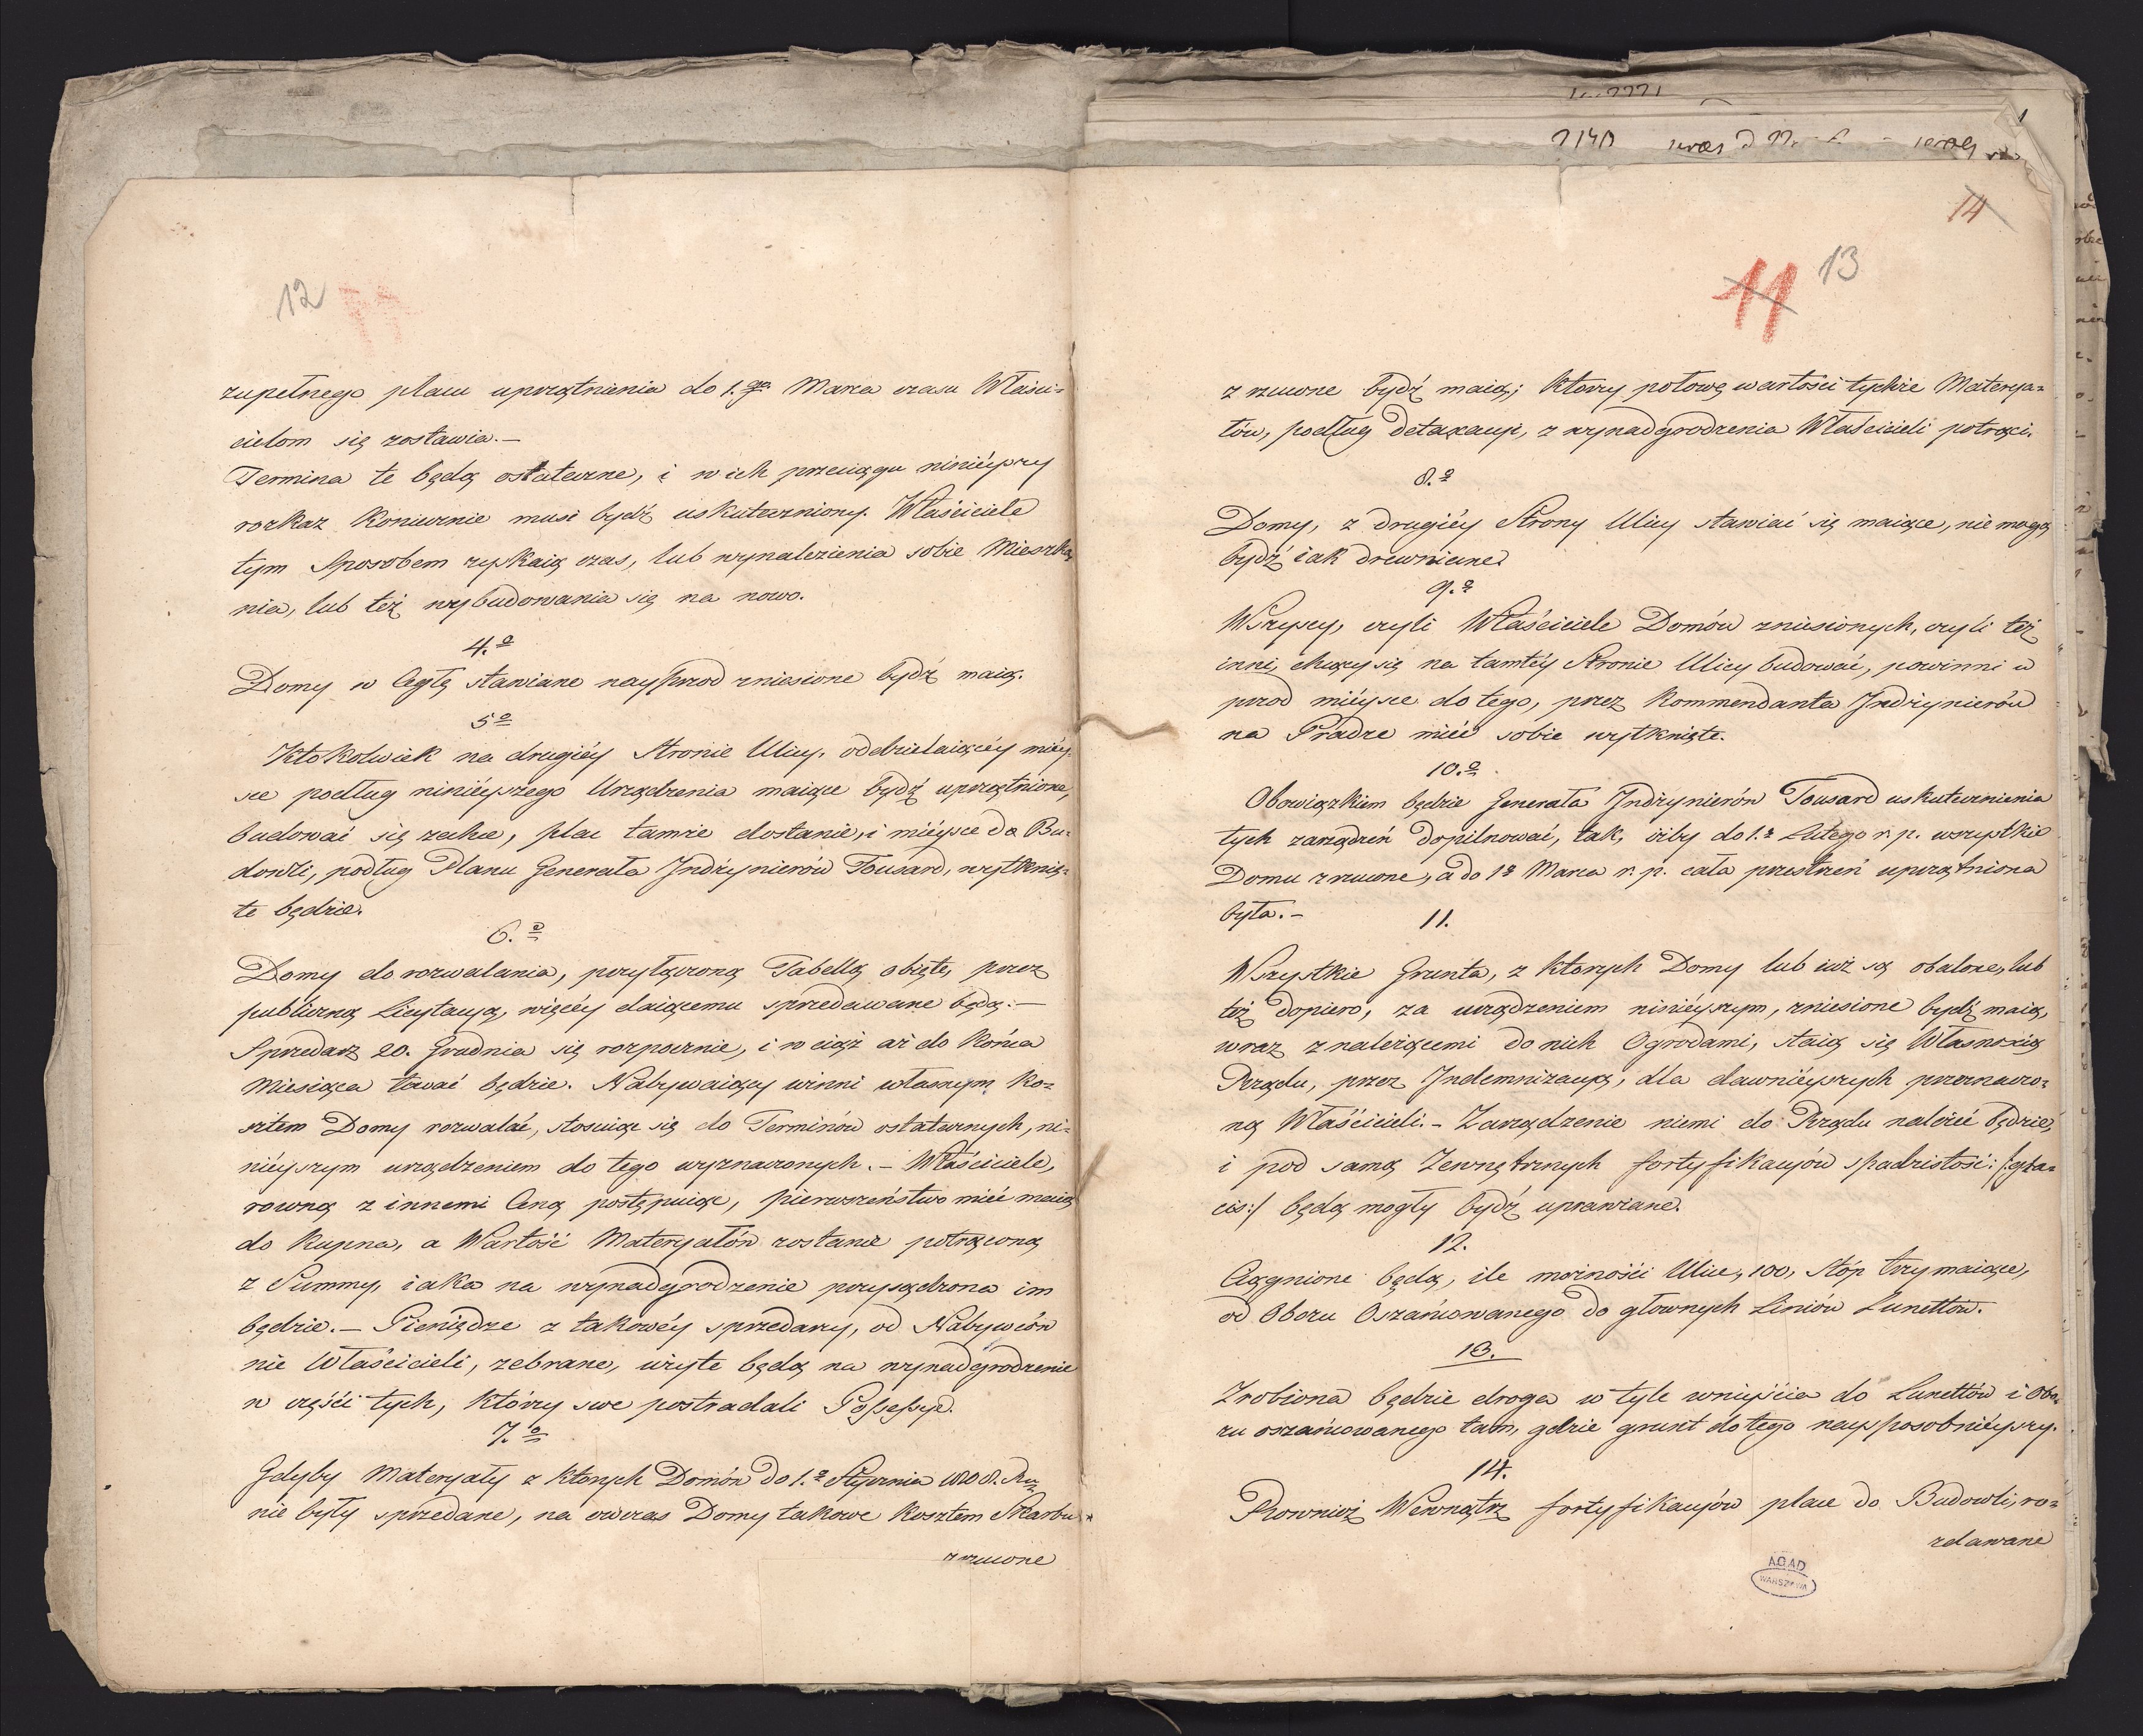 12
zupełnego placu uprzątnienia do 1.go Marca czasu Właści=
cielom się zostawia.—
Termina te będą ostateczne, i w ich przeciągu ninieyszy
rozkaz koniecznie musi bydź uskuteczniony. Właściciele
tym sposobem zyskaią czas, lub wynalezienia sobie Mieszka
nia, lub też wybudowania się na nowo.
4.o
Domy w Cegłę stawiane nayprzod zniesione bydź maią.
5o
Ktokolwiek na drugiéy stronie Ulicy, oddzielaiącéy miéy
sce podług ninieyszego Urządzenia maiące bydź uprzątnione,
budować się zechce, plac tamże dostanie, i miéysce do Bu=
dowli, podług Planu Generała Jndżynierów Tousard, wytknię=
te będzie.
6.o
Domy do rozwalania, przyłączoną Tabellą obięte, przez
publiczną Licytacyą, więcéy daiącemu sprzedawane będą.—
Sprzedaż 20. Grudnia się rozpocznie, i wciąż aż do końca
Miesiąca trwać będzie. Nabywaiący winni własnym ko=
sztem Domy rozwalać, stosuiąc się do Terminów ostatecznych, ni=
niéyszym urządzeniem do tego wyznaczonych.— Właściciele,
rowną z innemi Ceną postępuiąc, pierwszeństwo mieć maią
do kupna, a Wartość Materyałów zostanie potrąconą
z Summy, iaka na wynadgrodzenie przysądzona im
będzie.— Pieniądze z takowéy sprzedaży, od Nabywców
nie Właścicieli, zebrane, użyte będą na wynadgrodzenie
w części tych, którzy swe postradali Possessye.
7.o
Gdyby Materyały z ktorych Domów do 1.o Stycznia 1808. Ru
nie były sprzedane, na owczas Domy takowe kosztem Skarbu
zrzucone
14
11 13
zrzucone bydź maią; ktory połowę wartości tychże Materya=
łów, podług detaxacyi, z wynadgrodzenia Właścicieli potrąci.
8.o
Domy, z drugiéy Strony Ulicy stawiać się maiące, nie mogą
bydź iak drewniane.
9.o
Wszyscy, czyli Właściciele Domów zniesionych, czyli też
inni, chcący się na tamtéy Stronie Ulicy budować, powinni w
przod miéysce do tego, przez Kommendanta Jndżynierów
na Pradze mieć sobie wytknięte.
10.o
Obowiązkiem będzie Generała Jndżynierów Tousard uskutecznienia
tych zarządzeń dopilnować, tak, iżby do 1.o Lutego r. p. wszystkie
Domu zrzucone, a do 1o Marca r. p. cała przestrzeń uprzątniona
była.—
11.
Wszystkie Grunta, z ktorych Domy lub iuż są obalone, lub
też dopiero, za urządzeniem ninieyszym, zniesione bydź maią,
wraz z należącemi do nich Ogrodami, staią się Własnością
Rządu, przez Jndemnizacyą, dla dawniéyszych przeznaczo=
ną Właścicieli.— Zarządzenie niemi do Rządu należeć będzie,
i pod samą Zewnętrznych fortyfikacyów spadzistość :/:gła=
cis:/ będą mogły bydź uprawiane.
12.
Ciągnione będą, ile możności Ulice, 100, Stóp trzymaiące,
od Obozu Oszańcowanego do głownych Liniów Lunettów.
13.
Zrobiona będzie droga w tyle wniyścia do Lunettów i Obo=
zu oszańcowanego tam, gdzie grunt do tego nayspo­sobniéyszy.
14.
Rownież Wewnątrz fortyfikacyów place do Budowli, ro=
zdawane
A.G.A.D
WARSZAWA